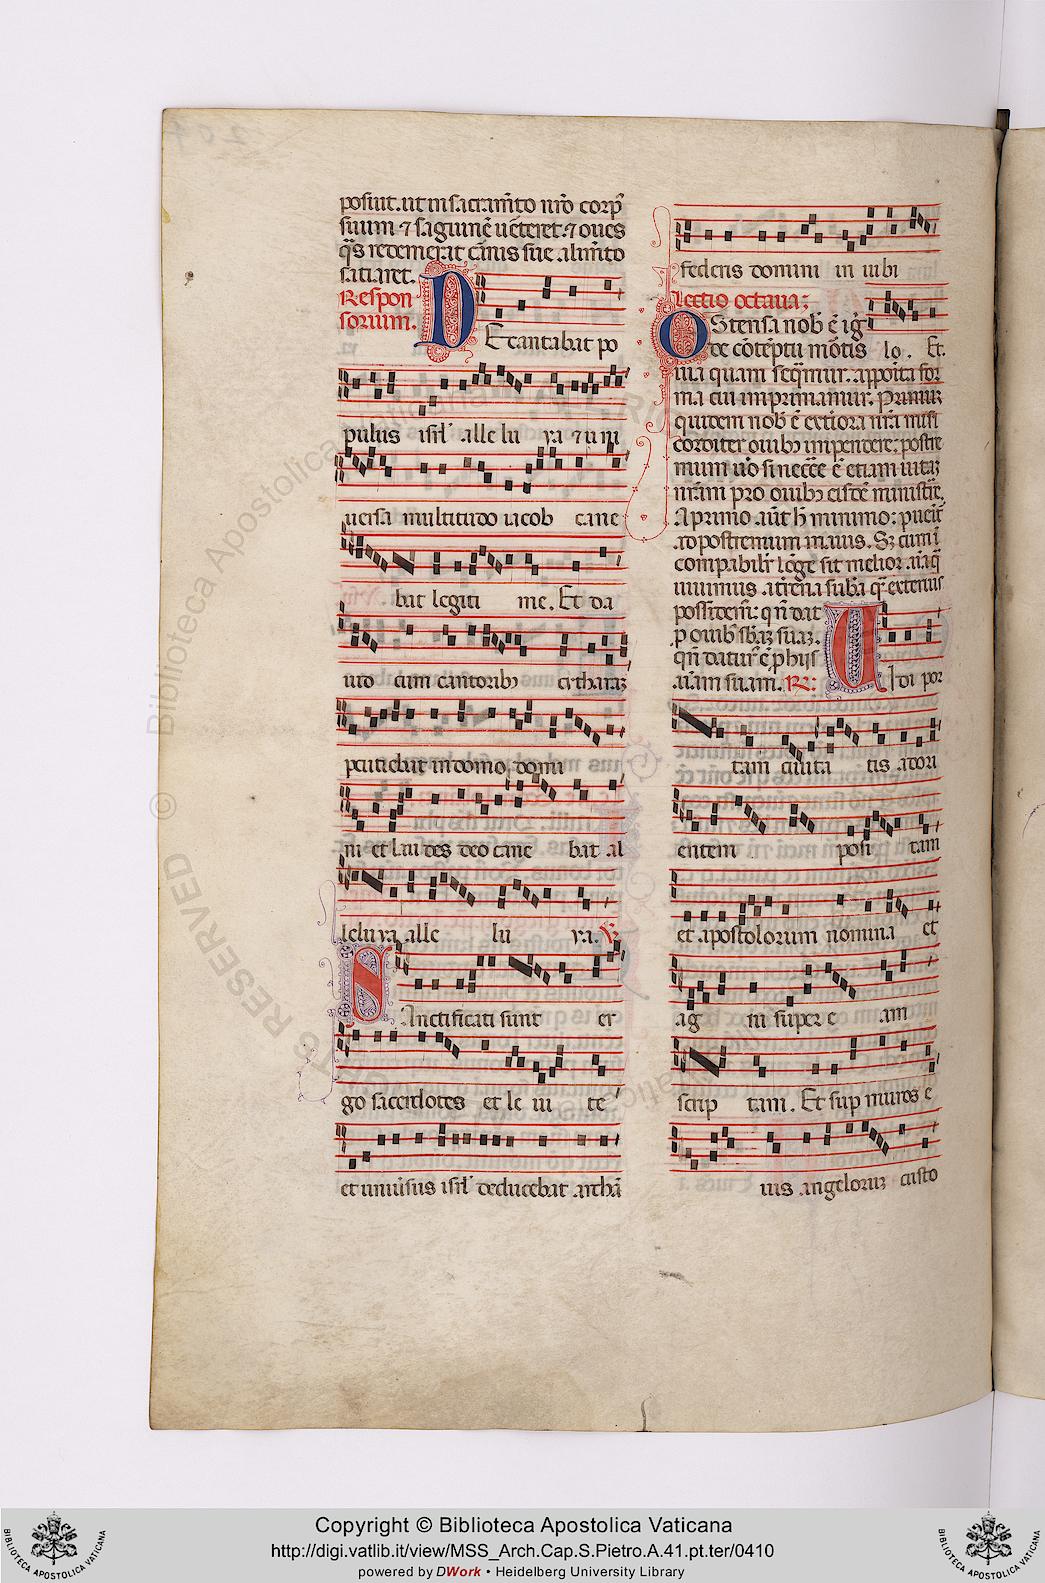 posuit. ut in sacram̃to nr̃o corp᷒
suum ⁊ sãguinẽ uẽteret. ⁊ oues
q̃s redemerat carnis sue alim̃to
satiaret.
Respon
sorium.
DEcantabat po
pulus isrł alle lu ya ⁊ uni
uersa multitudo iacob cane
bat legiti me. Et da
uid cum cantoribꝫ citharaꝫ
percutiebat in domo domi
ni et laudes deo cane bat al
leluya alle lu ya. ℣
SAnctificati sunt er
go sacerdotes et le ui te
et uniuersus isrł deducebat archã
sederis domini in iubi
Lectio octaua:
OStensa nob̃ ẽ igr̃
de cõteptu mõtis lo. Et
uia quam seq̃mur. apposita for
ma cui imprimamur. Primuꝫ
quidem nob̃ ẽ exteriora nr̃a misi
corditer ouibꝫ impendere: postre
mum uo si necc̃e ẽ etiam uitaꝫ
nr̃am pro ouibꝫ eisdẽ ministre.
A primo aut̃ h̃ minimo: pueit̃
ad postremum maius. Sꝫ cum ĩ
comparabilr̃ longe sit melior aĩa q̃
uiuimus. a terrena sub̃a q̃ exterius
possidem᷒: q̃ ñ dat
p̱ ouibꝫ sb̃aꝫ suaꝫ.
qñ datur᷒ ẽ p̱ hijs
aĩam suam. R̃:
UIdi por
tam ciuita tis ad ori
entem posi tam
et apostolorum nomina et
ag ni super e am
scrip tam. Et sup muros e
ius angeloruꝫ custo
Copyright © Biblioteca Apostolica Vaticana
http://digi.vatlib.it/view/MSS_Arch.Cap.S.Pietro.A.41.pt.ter/0410
powered by DWork • Heidelberg University Library